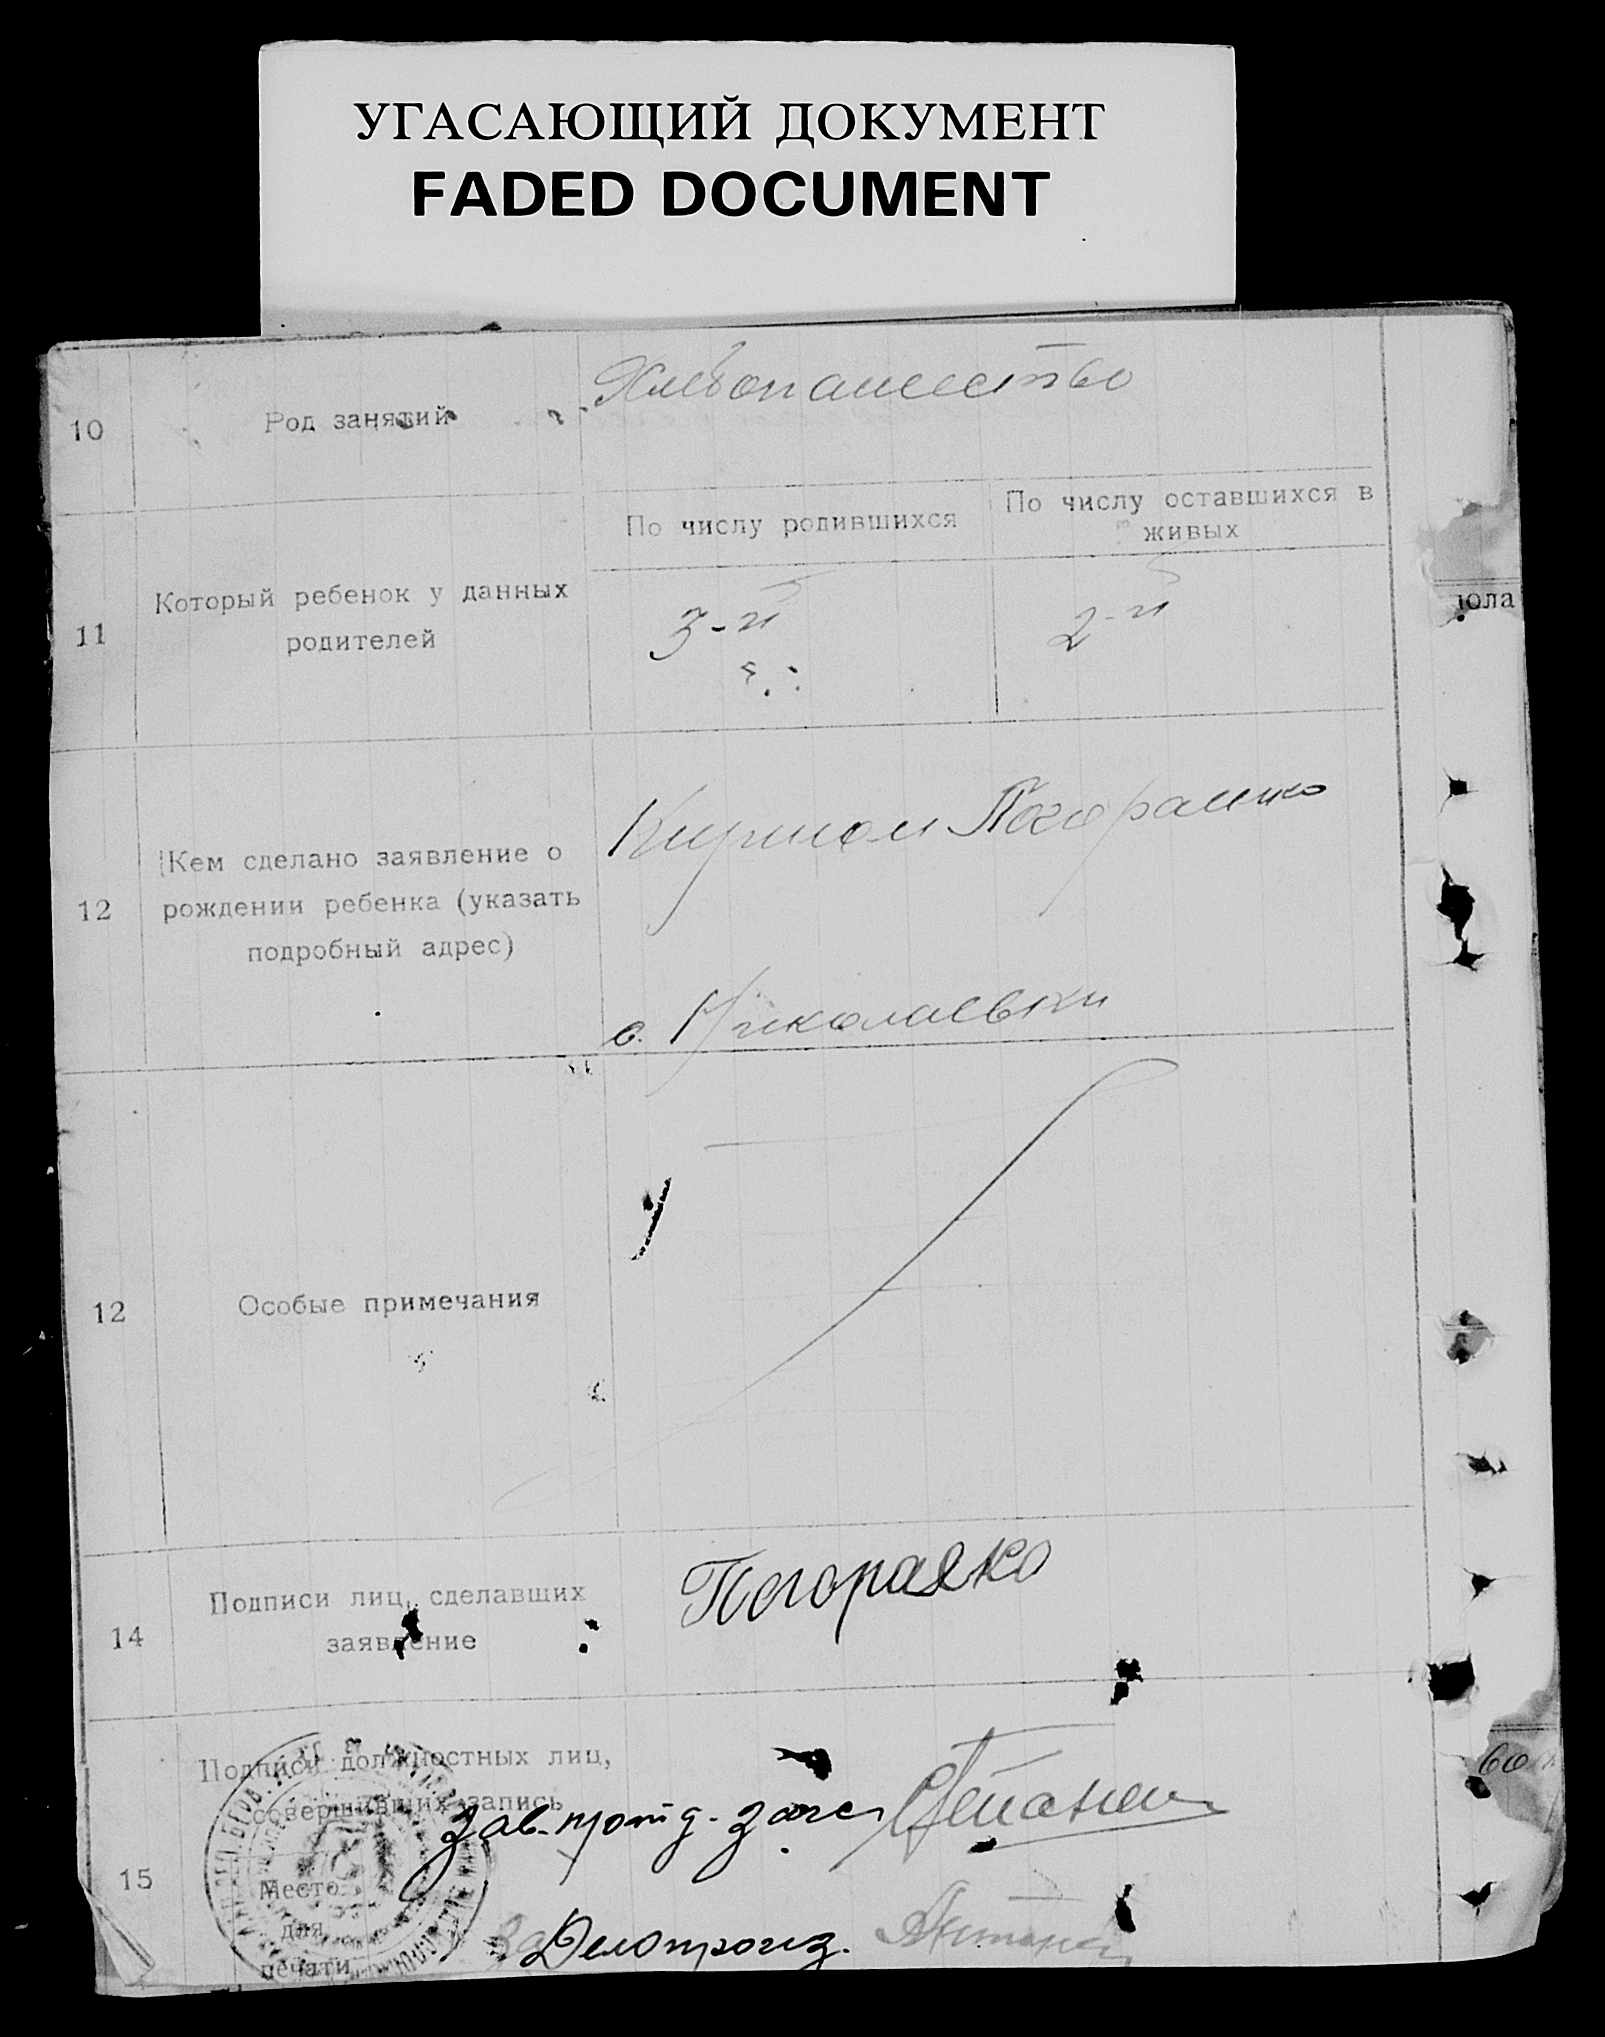 УГАСАЮЩИЙ ДОКУМЕНТ
FADED DOCUMENT
10
Род занятий
Хлебопашество
11
Который ребенок у данных
родителей
По числу родившихся
По числу оставшихся в
живых
3-й
2-й
юла
12
Кем сделано заявление о
рождении ребенка (указать
подробный адрес)
с. Николаевки
12
Особые примечания
14
Подписи лиц, сделавших
заявление
15
Подписи должностных лиц,
совершивших запись
Зав.
Место
для
печати
Делопроиз.
60